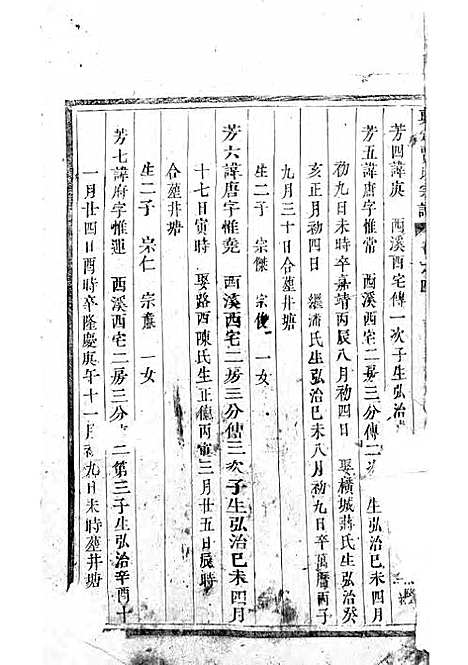 芳四諱庚 西溪西宅傳一次子生弘治
芳五諱唐字惟常 西溪西宅二房三分傳二 生弘治己未四月
初九日未時卒嘉靖丙辰八月初四日 娶橫城蔣氏生弘治癸
亥正月初四日 繼潘氏生弘治己未八月初九日卒萬曆丙子
九月三十日合塟井塘
生二子 宗傑 宗俊 一女
芳六諱唐字惟堯 西溪西宅二房三分傳二次子生弘治己未四月
十七日寅時 娶路西陳氏生正德丙寅三月廿五日辰時
合塟井塘
生二子 宗仁 宗 一女
芳七諱府字惟運 西溪西宅二房三分 二第三子生弘治辛酉十
一月廿四日酉時卒隆慶庚午十一月初九日未時塟井塘